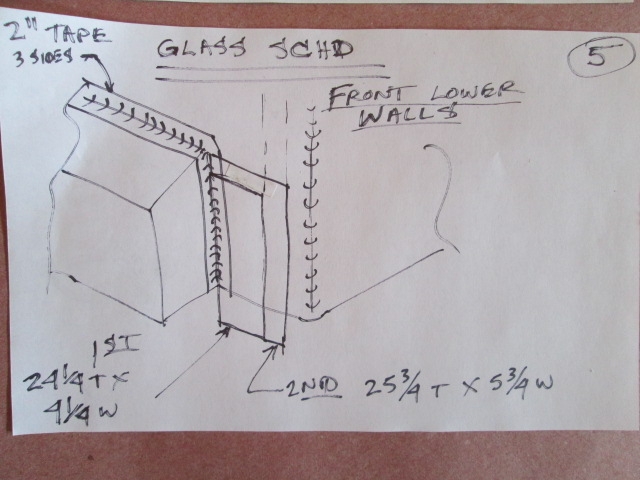 2" TAPE
3 SIDES
GLASS SCHD
5
FRONT LOWER
WALLS
1ST
24 1/4 T X
4 1/4 W
2ND 25 3/4 T X 5 3/4 W